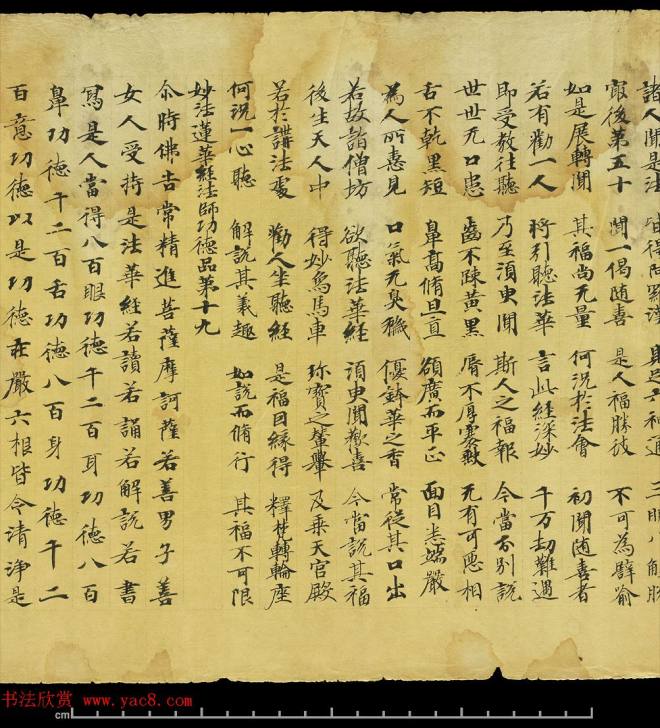 諸人聞是法 皆得阿羅漢 具足六神通 三明八解脫
冣後第五十 聞一偈随喜 是人福勝彼 不可為譬喻
如是展轉聞 其福尚无量 何況扵法會 初聞随喜者
若有勸一人 將引聽法華 言此經深妙 千万劫難遇
即受教往聽 乃至湏臾聞 斯人之福報 今當分別說
世世无口患 齒不踈黄黑 脣不厚褰缺 无有可惡相
舌不乾黑短 鼻高脩且直 額廣而平正 面目悉端嚴
為人所憙見 口氣无臭穢 優鉢華之香 常從其口出
若故詣僧坊 欲聽法華經 湏臾聞歡喜 今當說其福
後生天人中 得妙象馬車 珎寶之輦轝 及乗天宫殿
若扵講法處 勸人坐聽經 是福因縁得 釋梵轉輪座
何況一心聽 解說其義趣 如說而脩行 其福不可限
妙法蓮華經法師功德品第十九
尒時佛告常精進菩薩摩訶薩若善男子善
女人受持是法華經若讀若誦若解說若書
寫是人當得八百眼功德千二百耳功德八百
鼻功德千二百舌功德八百身功德千二
百意功德以是功德莊嚴六根皆令清淨是
书法欣赏 www.yac8.com
cm